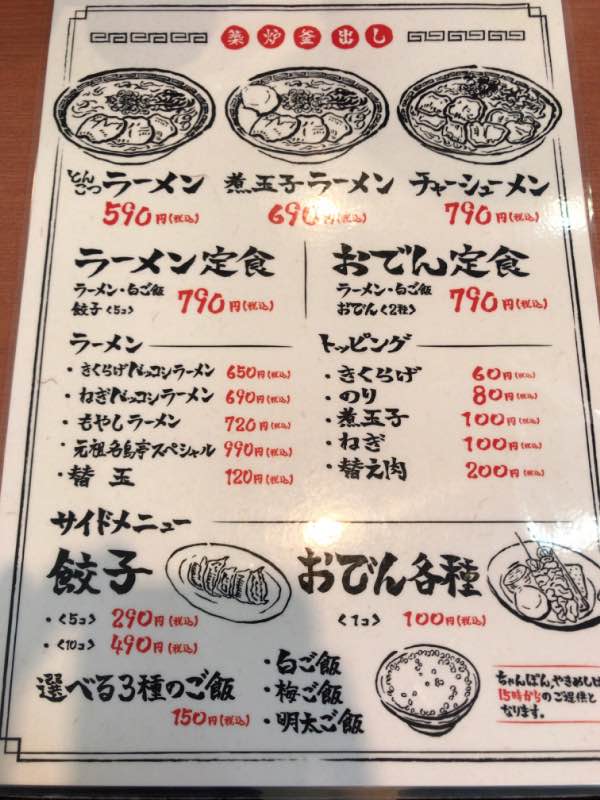 築炉釜出し
とんこつラーメン 煮玉子ラーメン チャーシューメン
590円(税込) 690円(税込) 790円(税込)
ラーメン定食 おでん定食
ラーメン・白ご飯
餃子〈5コ〉 790円(税込)
ラーメン・白ご飯
おでん〈2種〉 790円(税込)
ラーメン
・きくらげドッコシラーメン 650円(税込)
・ねぎドッコシラーメン 690円(税込)
・もやしラーメン 720円(税込)
・元祖名島亭スペシャル 990円(税込)
・替玉 120円(税込)
トッピング
・きくらげ 60円(税込)
・のり 80円(税込)
・煮玉子 100円(税込)
・ねぎ 100円(税込)
・替え肉 200円(税込)
サイドメニュー
餃子
・〈5コ〉 290円(税込)
・〈10コ〉 490円(税込)
おでん各種
〈1コ〉 100円(税込)
選べる3種のご飯
150円(税込)
・白ご飯
・梅ご飯
・明太ご飯
ちゃんぽん、やきめしは
15時からのご提供と
なります。